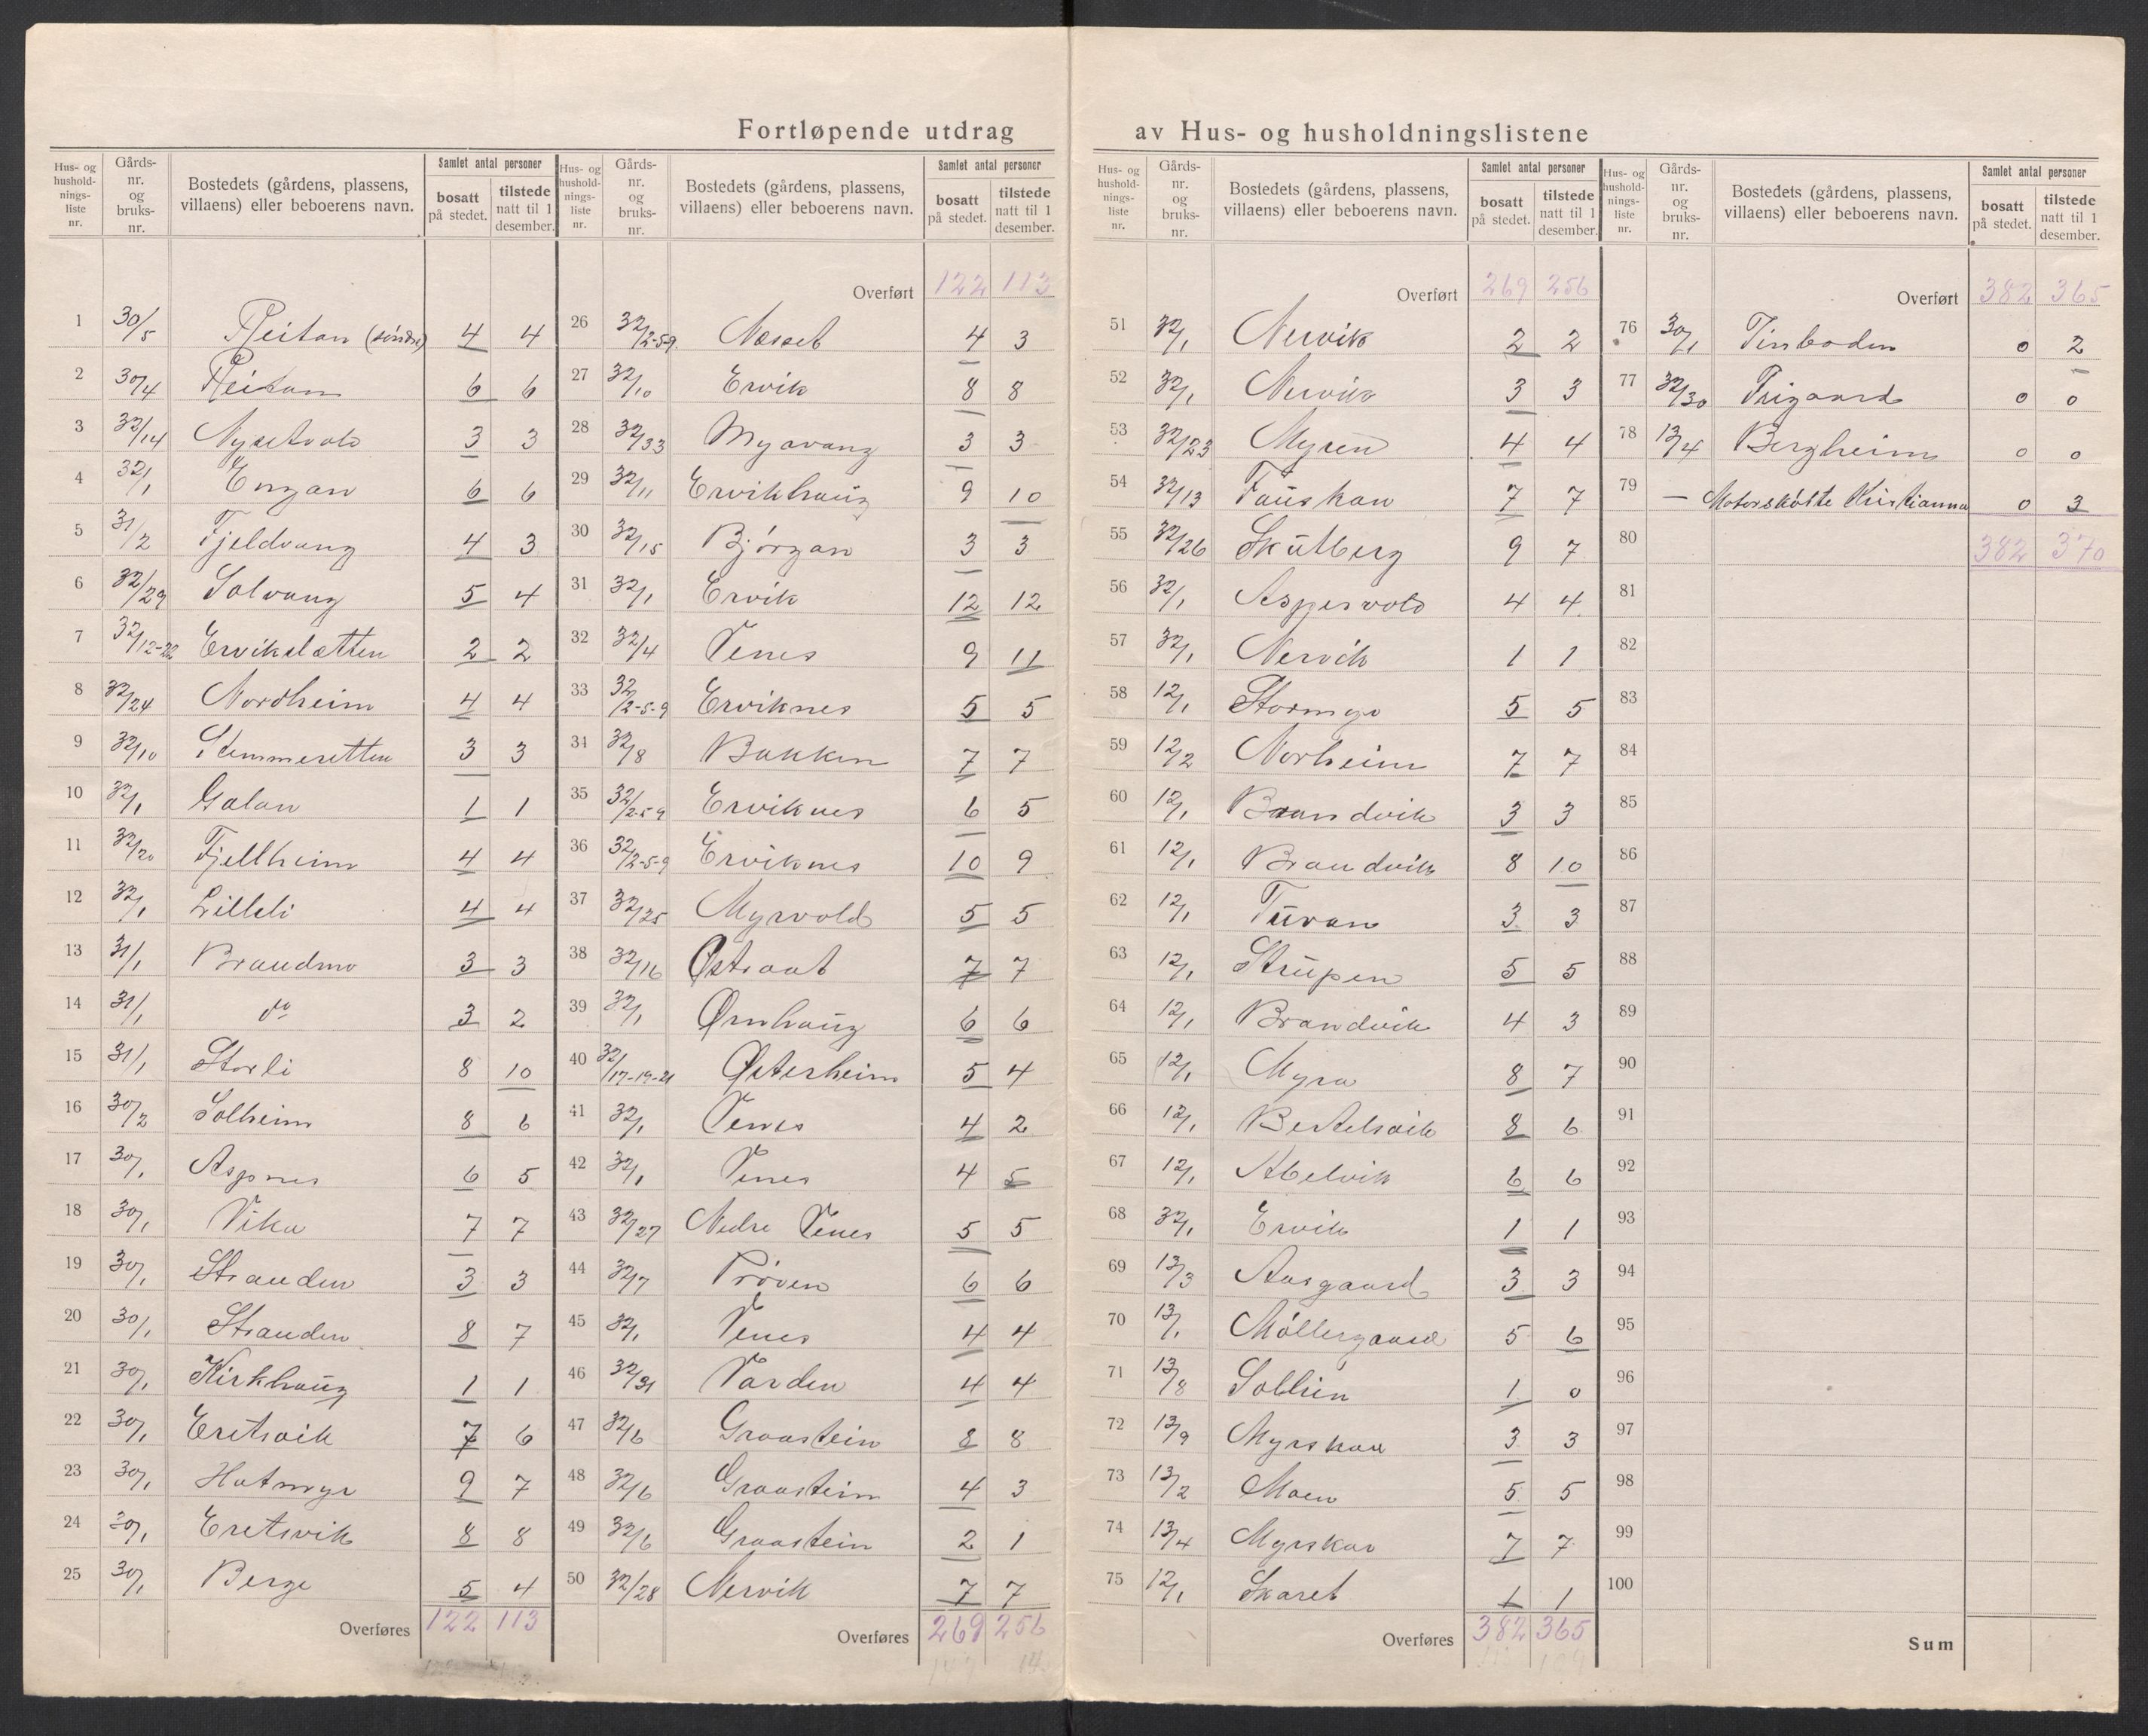 Fortløpende utdrag av Hus- og husholdningslistene
Hus- og husholdnings-liste nr. | Gårds-nr. og bruks-nr. | Bostedets (gårdens, plassens, villaens) eller beboerens navn. | Samlet antal personer | bosatt på stedet. | tilstede natt til 1 desember.
1 30/5 Reitan (søndre) 4 4
2 30/4 Reitan 6 6
3 32/14 Nysetvold 3 3
4 32/1 Engan 6 6
5 31/2 Fjeldvang 4 3
6 32/29 Solvang 5 4
7 32/12-22 Ervikslætten 2 2
8 32/24 Nordheim 4 4
9 32/10 3 3
10 32/1 Galan 1 1
11 32/20 Fjellheim 4 4
12 32/1 Lilleli 4 4
13 31/1 Brandmo 3 3
14 31/1 do 3 2
15 31/1 Storli 8 10
16 30/2 Solheim 8 6
17 30/1 Aspnes 6 5
18 30/1 Vika 7 7
19 30/1 Stranden 3 3
20 30/1 Stranden 8 7
21 30/1 Kirkhaug 1 1
22 30/1 Eretsvik 7 6
23 30/1 Hatmyr 9 7
24 30/1 Eretsvik 8 8
25 30/1 Berge 5 4
Overføres 122 113
Hus- og husholdnings-liste nr. | Gårds-nr. og bruks-nr. | Bostedets (gårdens, plassens, villaens) eller beboerens navn. | Samlet antal personer | bosatt på stedet. | tilstede natt til 1 desember.
Overført 122 113
26 32/2-5-9 Nesset 4 3
27 32/10 Ervik 8 8
28 32/33 Myrvang 3 3
29 32/11 Ervikhaug 9 10
30 32/15 Bjørgan 3 3
31 32/1 Ervik 12 12
32 32/4 Venes 9 11
33 32/2-5-9 Erviknes 5 5
34 32/8 Bakken 7 7
35 32/2-5-9 Erviknes 6 5
36 32/2-5-9 Erviknes 10 9
37 32/25 Myrvold 5 5
38 32/16 Østraat 7 7
39 32/1 Ørnhaug 6 6
40 32/17-19-21 Østerheim 5 4
41 32/1 Venes 4 2
42 32/1 Venes 4 5
43 32/27 Nedre Venes 5 5
44 32/7 Prøven 6 6
45 32/1 Venes 4 4
46 32/31 Varden 4 4
47 32/6 Graastein 8 8
48 32/6 Graastein 4 3
49 32/6 Graastein 2 1
50 32/28 Nervik 7 7
Overføres 269 256
Hus- og husholdnings-liste nr. | Gårds-nr. og bruks-nr. | Bostedets (gårdens, plassens, villaens) eller beboerens navn. | Samlet antal personer | bosatt på stedet. | tilstede natt til 1 desember.
Overført 269 256
51 32/1 Nervik 2 2
52 32/1 Nervik 3 3
53 32/23 Myren 4 4
54 32/13 Fauskan 7 7
55 32/26 Skutberg 9 7
56 32/1 Aspesvold 4 4
57 32/1 Nervik 1 1
58 12/1 Stormyr 5 5
59 12/2 Norheim 7 7
60 12/1 Brandvik 3 3
61 12/1 Brandvik 8 10
62 12/1 Tuvan 3 3
63 12/1 Strupen 5 5
64 12/1 Brandvik 4 3
65 12/1 Myra 8 7
66 12/1 Bertelsvik 8 6
67 12/1 Abelvik 6 6
68 32/1 Ervik 1 1
69 13/3 Aasgaard 3 3
70 13/1 Møllergaard 5 6
71 13/8 Solli 1 0
72 13/9 Myrskar 3 3
73 13/2 Moen 5 5
74 13/4 Myrskar 7 7
75 12/1 Skaret 1 1
Overføres 382 365
Hus- og husholdnings-liste nr. | Gårds-nr. og bruks-nr. | Bostedets (gårdens, plassens, villaens) eller beboerens navn. | Samlet antal personer | bosatt på stedet. | tilstede natt til 1 desember.
Overført 382 365
76 30/1 Tinboden 0 2
77 32/30 0 0
78 13/4 Bergheim 0 0
79 — Motorskøite Kristianna 0 3
80 382 370
81
82
83
84
85
86
87
88
89
90
91
92
93
94
95
96
97
98
99
100
Sum